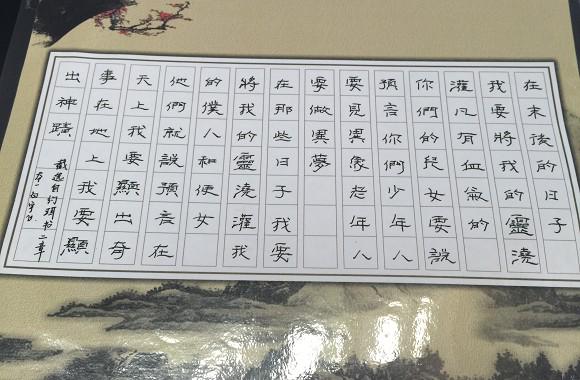 在末後的日子
我要將我的靈澆
灌凡有血氣的
你們的兒女要說
預言你們少年人
要見異象老年人
要做異夢
在那些日子我要
將我的靈澆灌我
的僕人和使女
他們就說預言在
天上我要顯出奇
事在地上我要顯
出神蹟
截選自約珥书二章